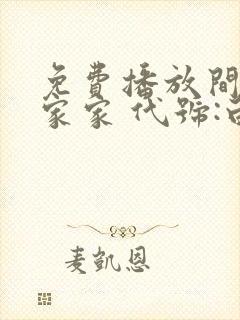 免費播放間
家家 代號:
麦凱恩